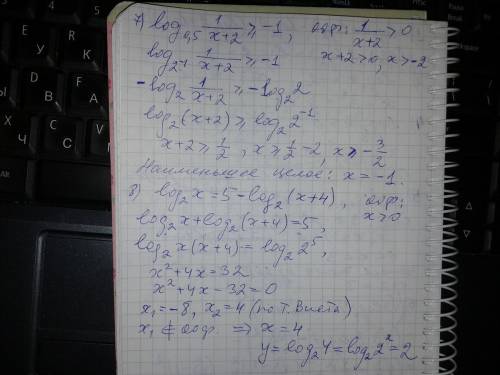 7) log₀,₅ 1/(x+2) ≥ -1, оофр: 1/(x+2) > 0
log₂₋₁ 1/(x+2) ≥ -1 x+2>0, x>-2
-log₂ 1/(x+2) ≥ -1log₂2
log₂(x+2) ≥ log₂2⁻¹
x+2 ≥ 1/2, x ≥ 1/2 -2, x ≥ -3/2
Наименьшее целое: x = -1.
8) log₂x = 5-log₂(x+4), оофр:
log₂x+log₂(x+4)=5, x>0
log₂x(x+4) = log₂2⁵,
x²+4x=32
x²+4x-32=0
x₁=-8, x₂=4 (по т. Виета)
x₁ ∉ оофр ⇒ x=4
y=log₂4=log₂2²=2.